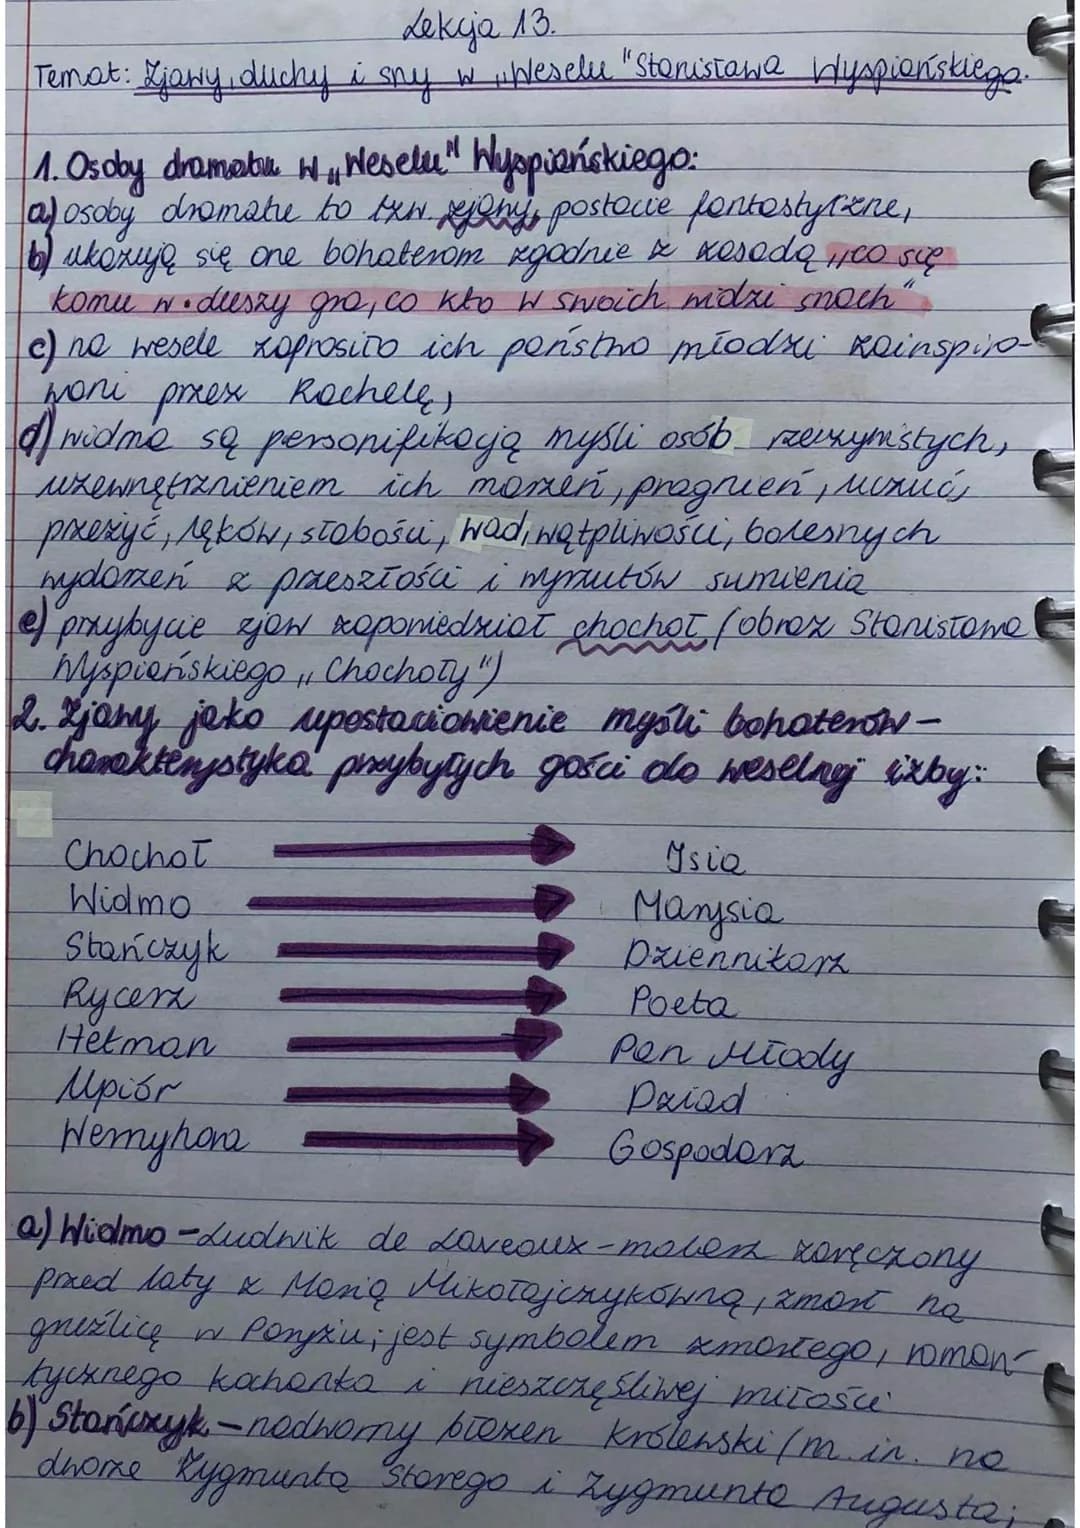 Lekcja 13.
Temat: Zjawy, duchy i sny w „Weselu" Stanisława Wyspiańskiego.
1. Osoby dramatu w „Weselu" Wyspiańskiego:
a) osoby dramatu to tzw. zjawy, postacie fantastyczne,
b) ukazują się one bohaterom zgodnie z zasadą „co się
komu w duszy gra, co kto w swoich widzi snach"
c) na wesele zaprosiło ich państwo młodzi zainspiro-
wani przez Rachelę,
d) widma są personifikacją myśli osób rzeczywistych,
uzewnętrznieniem ich marzeń, pragnień, uczuć,
przeżyć, lęków, słabości, wad, wątpliwości, bolesnych
wydarzeń z przeszłości i wyrzutów sumienia
e) przybycie zjaw zapowiedział chochoł (obraz Stanisława
Wyspiańskiego „Chochoły")
2. Zjawy jako upostaciowienie myśli bohaterów -
charakterystyka przybyłych gości do weselnej izby:
Chochoł Isia
Widmo Marysia
Stańczyk Dziennikarz
Rycerz Poeta
Hetman Pan Młody
Upiór Dziad
Wernyhora Gospodarz
a) Widmo - Ludwik de Laveoux - malarz zaręczony
przed laty z Marią Mikołajczykówną, zmarł na
gruźlicę w Paryżu; jest symbolem zmarłego, roman-
tycznego kochanka i nieszczęśliwej miłości
b) Stańczyk - nadworny błazen królewski (m.in. na
dworze Zygmunta Starego i Zygmunta Augusta;